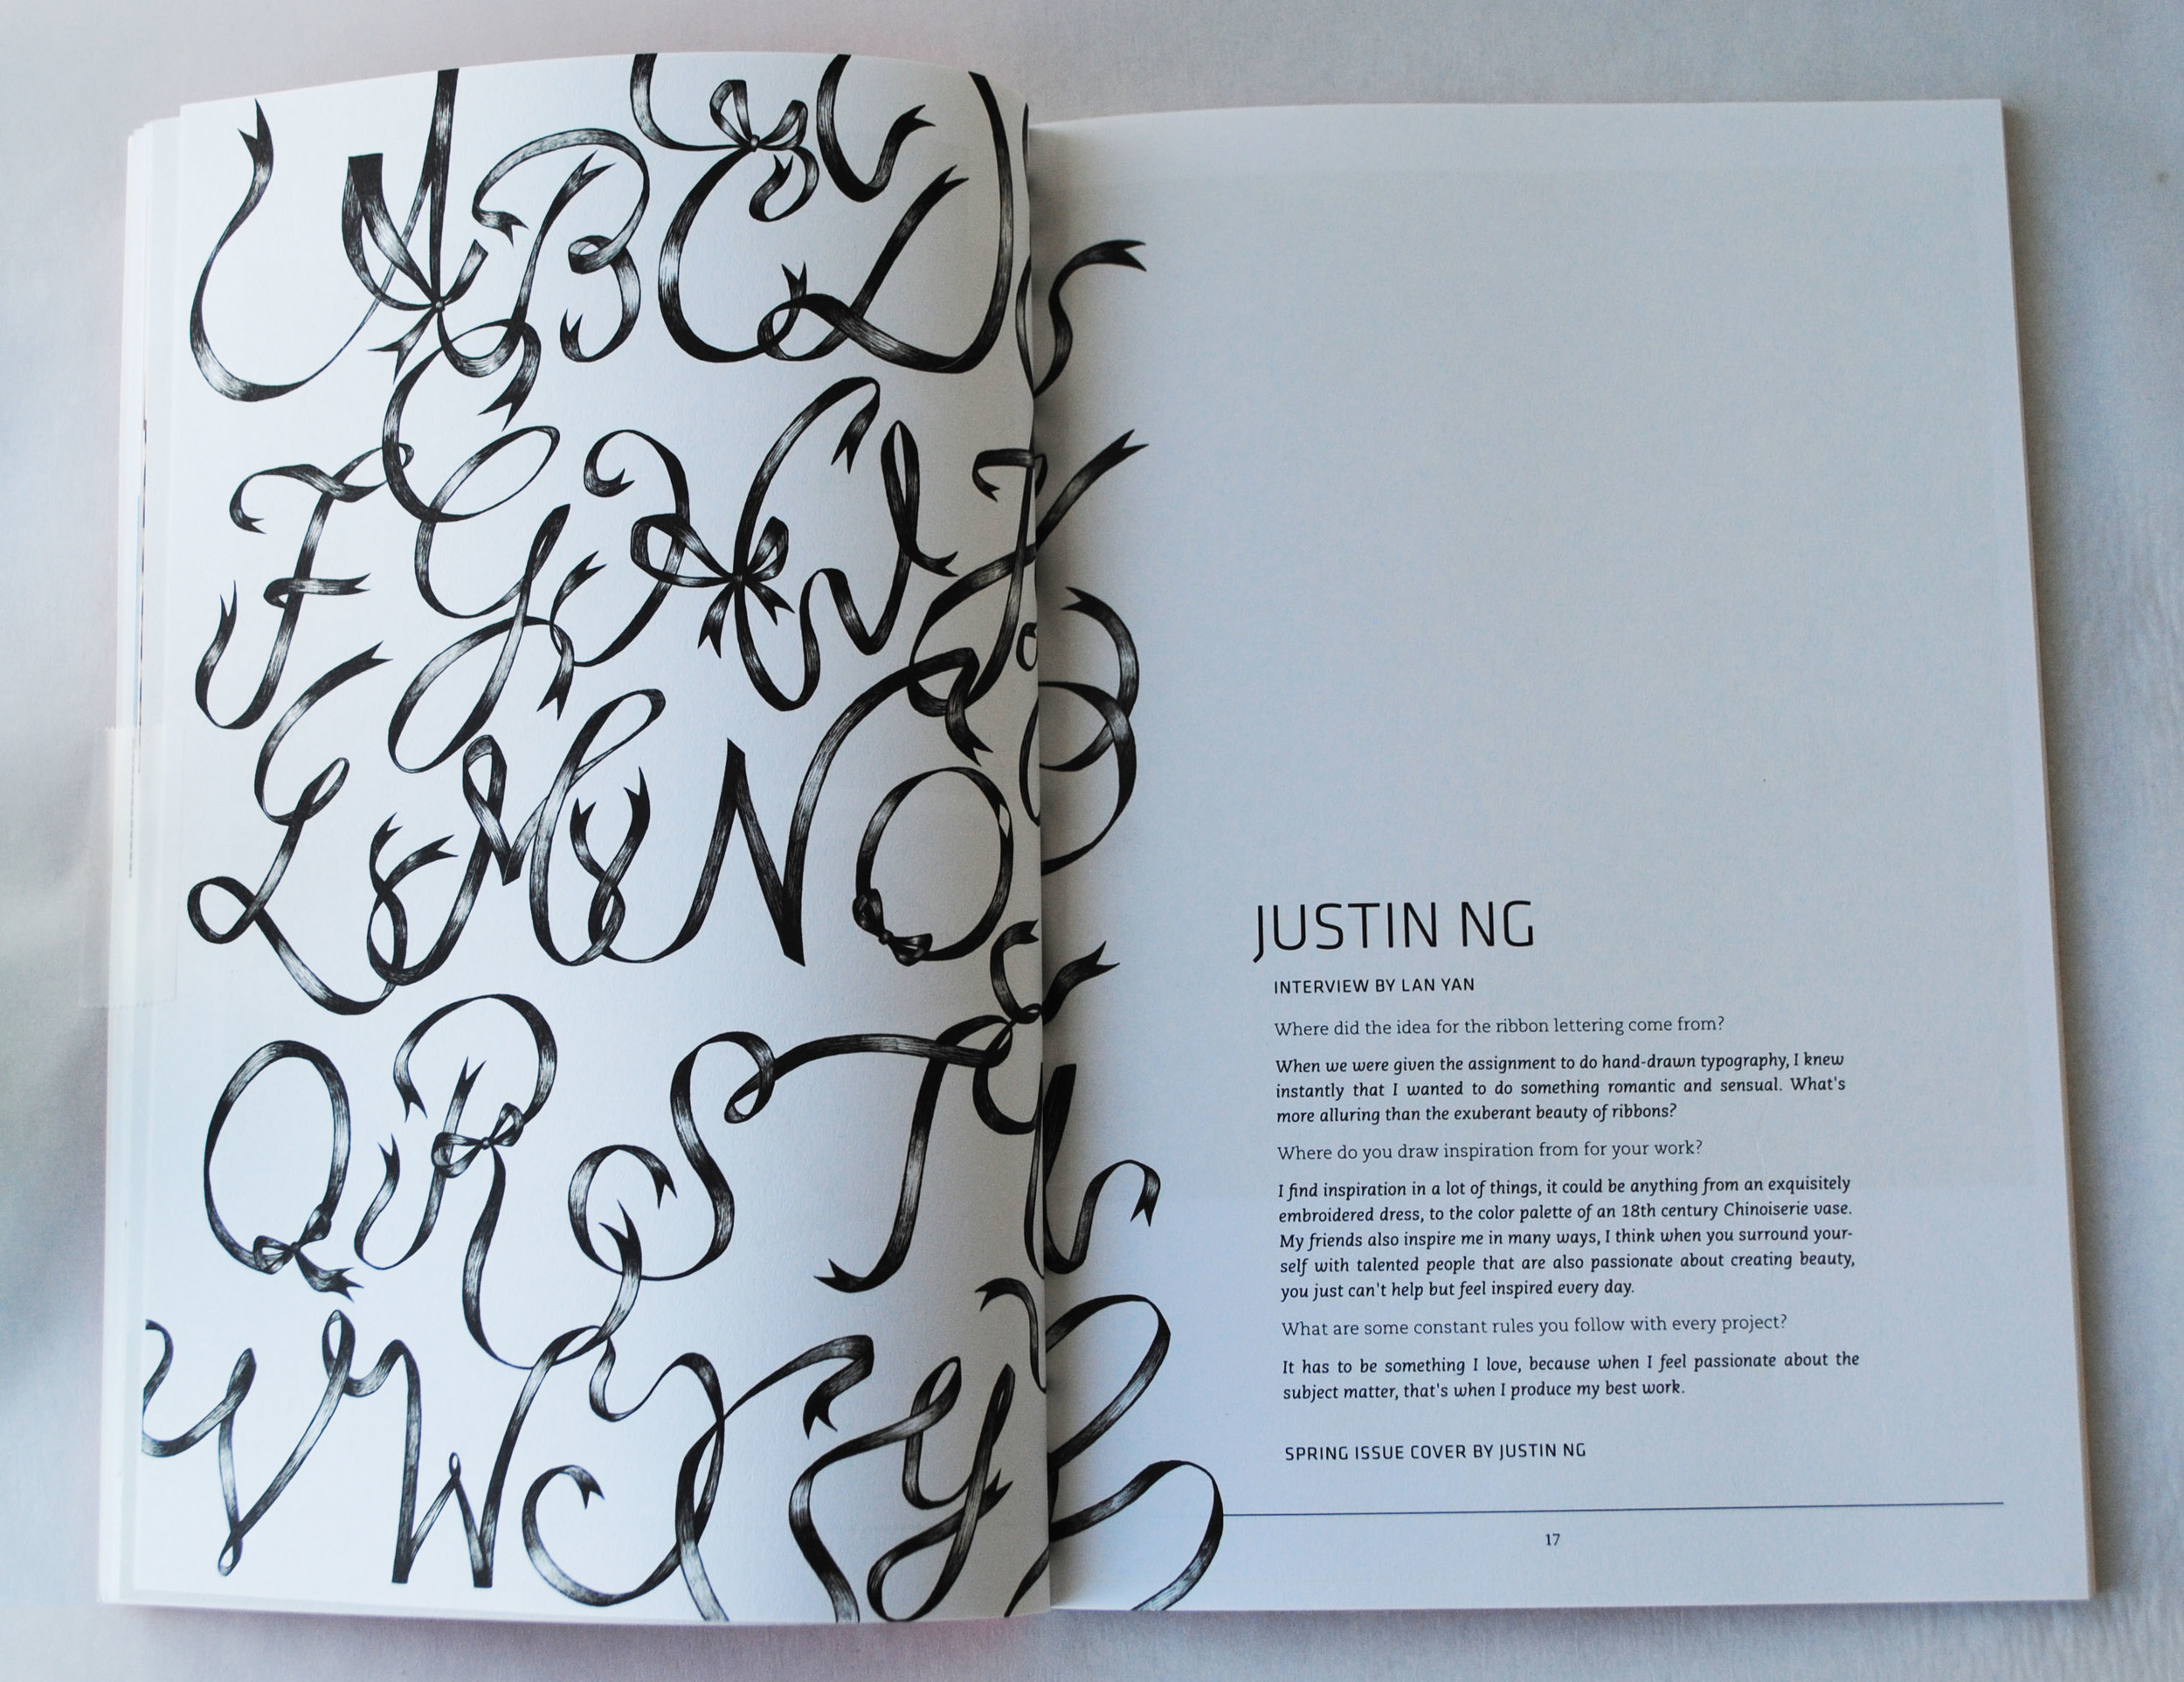 A B C D
F G H I J K
L M N O P
Q R S T U
V W X Y Z
JUSTIN NG
INTERVIEW BY LAN YAN
Where did the idea for the ribbon lettering come from?
When we were given the assignment to do hand-drawn typography, I knew
instantly that I wanted to do something romantic and sensual. What's
more alluring than the exuberant beauty of ribbons?
Where do you draw inspiration from for your work?
I find inspiration in a lot of things, it could be anything from an exquisitely
embroidered dress, to the color palette of an 18th century Chinoiserie vase.
My friends also inspire me in many ways, I think when you surround your-
self with talented people that are also passionate about creating beauty,
you just can't help but feel inspired every day.
What are some constant rules you follow with every project?
It has to be something I love, because when I feel passionate about the
subject matter, that's when I produce my best work.
SPRING ISSUE COVER BY JUSTIN NG
17